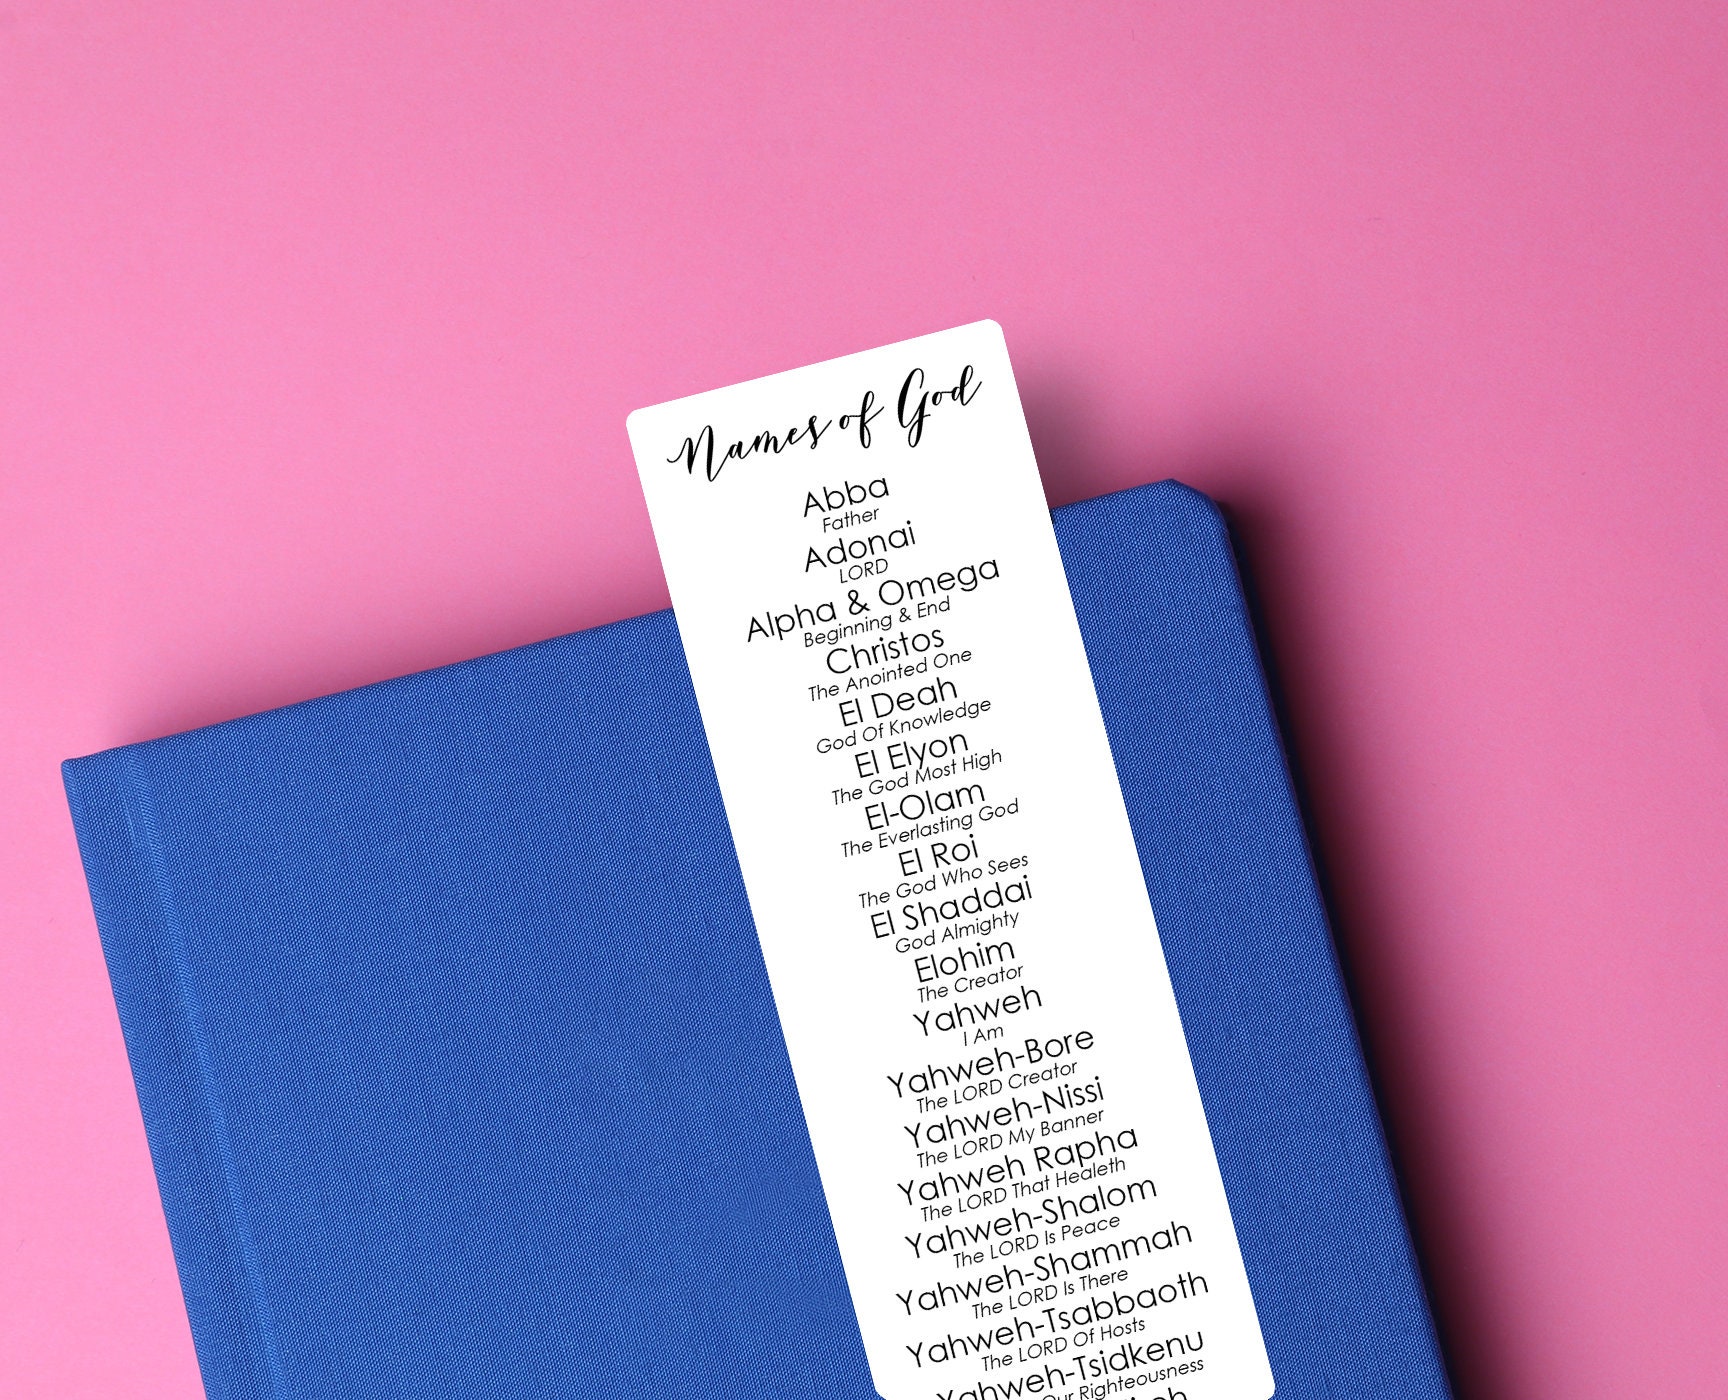 Names of God
Abba
Father
Adonai
LORD
Alpha & Omega
Beginning & End
Christos
The Anointed One
El Deah
God Of Knowledge
El Elyon
The God Most High
El-Olam
The Everlasting God
El Roi
The God Who Sees
El Shaddai
God Almighty
Elohim
The Creator
Yahweh
I Am
Yahweh-Bore
The LORD Creator
Yahweh-Nissi
The LORD My Banner
Yahweh Rapha
The LORD That Healeth
Yahweh-Shalom
The LORD Is Peace
Yahweh-Shammah
The LORD Is There
Yahweh-Tsabbaoth
The LORD Of Hosts
Yahweh-Tsidkenu
Our Righteousness